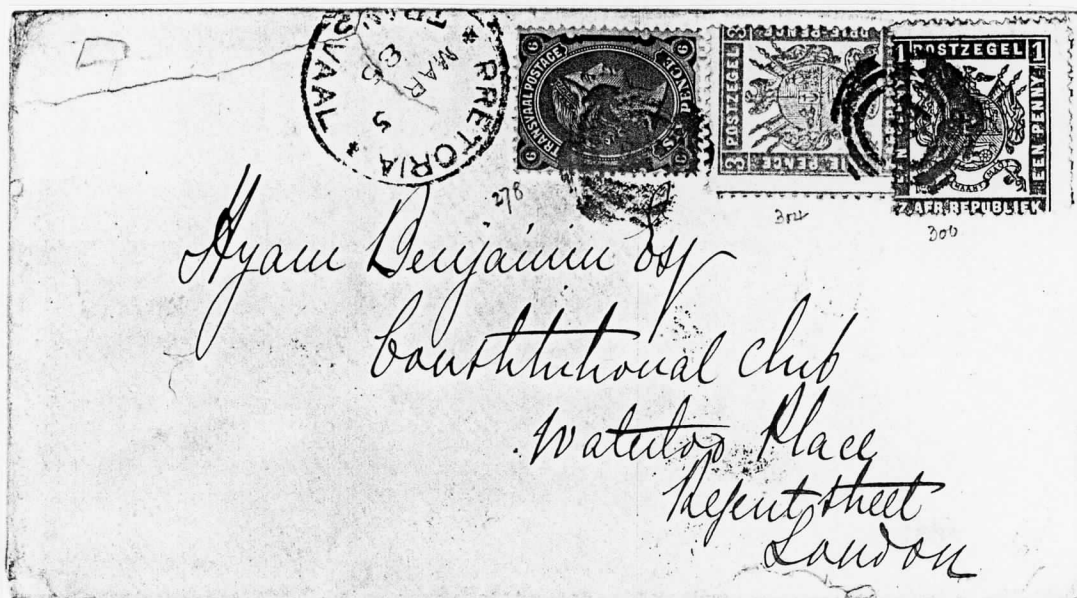 * PRETORIA * TRANSVAAL
MAR
5
83
TRANSVAAL POSTAGE
SIX PENCE
6 6 6 6
POSTZEGEL
3 3
DRIE PENCE
1 POSTZEGEL 1
EEN PENNY
EEN PENNY
Z. AFR. REPUBLIEK
278
304
300
Hyam Benjamin Esq
Constitutional Club
Waterloo Place
Regent Street
London